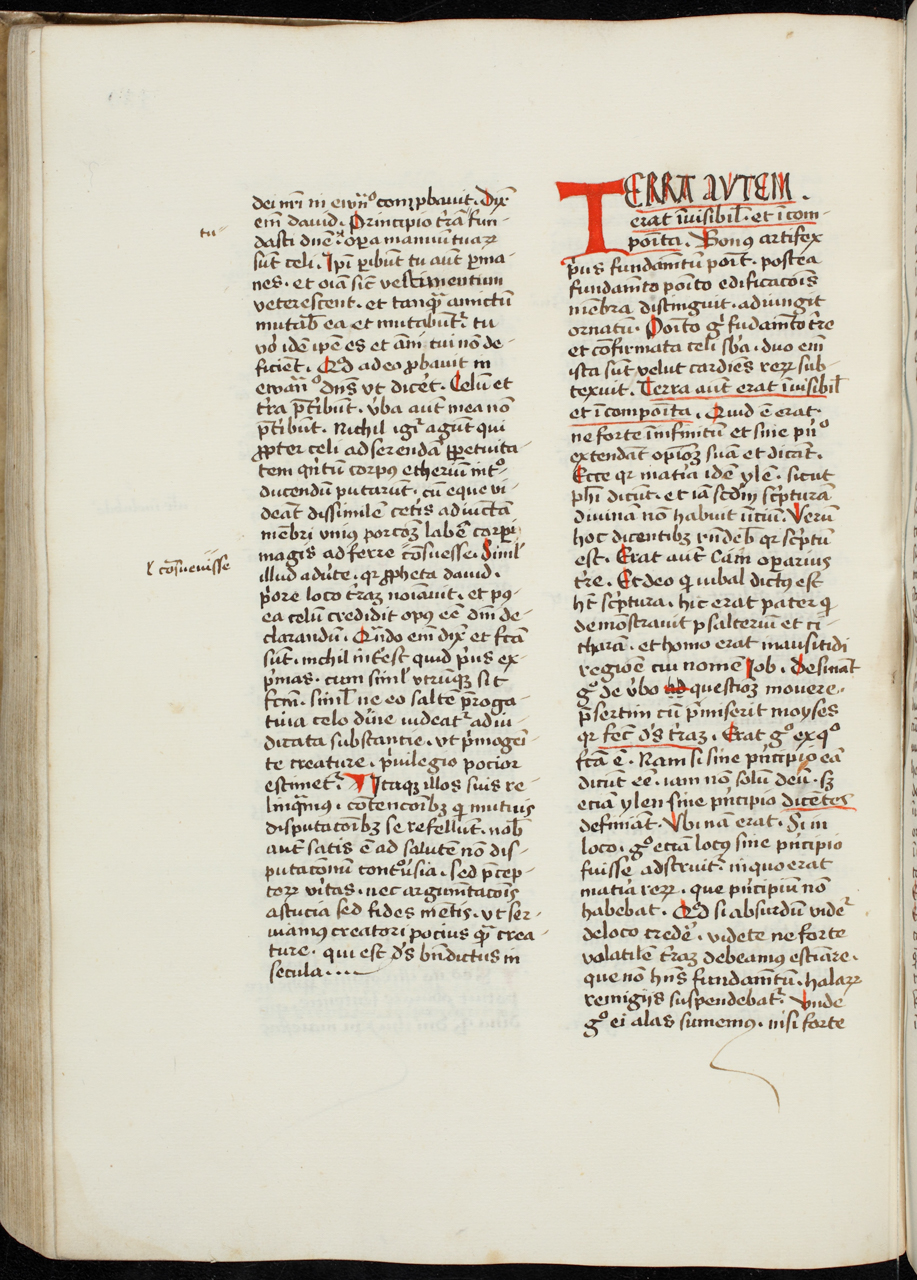 dei nr̄i in ewn̄º comp̱bauit. Dix̄
em̄ dauid. Principio tr̄ā fun-
tu-
dasti dn̄e. op̱a manuū tuaꝝ
sūt celi. Ip̄i p̱ibūt tu aūt p̱ma-
nes. et oīa sic̄ vestimentum
veterescent. et tanqᷓ amictū
mutab̄ ea et mutabūtᷣ. tu
vº idē ip̄e es et am̄ tui nō de-
ficiēt. Qd̄ adeo ꝓbauit in
ewan̄º dn̄s vt dicēt. Celū et
tr̄a p̄t'ibūt. v̓ba aūt mea nō
p̄t'ibūt. Nichil igᷣ agūt qui
ꝓpter celi ad serendā ꝑpetuita-
tem qn̄tū corpus etheriū intº-
ducendū putarūt. cū eque vi-
deāt dissimilē cet̓is adiūctā
mēbri vnius porcoꝫ labē corpi
magis adferre cōsuesse. Simil̄
ł cōsueuisse
illud adūte. qꝛ ꝓpheta dauid.
p̓ore loco tr̄aꝫ noīauit. et pꝰ-
ea celū credidit opus eē dn̄i de-
clarandū. Qn̄do em̄ dix̄ et fc̄ā
sūt. nichil int̓est quid p̓us ex-
p̓mas. cum simł vtrūqꝫ sit
fc̄m. simł ne eo saltē p̄roga-
tiua celo diīne videatᷣ adiu-
dicata substantie. vt p̓mogēi-
te creature. p̓uilegio pocior
estimetᷣ. Itaqꝫ illos suis re-
linqᷓmus. cōtencōibꝫ qi mutuis
disputacōibꝫ se refellūt. nob̄
aūt satis ē ad salutē nō dis-
putacōnū contᵒūsia. sed p̄cep-
torꝝ vitas. nec argum̄tacōis
astucia sed fides mētis. vt ser-
uiamus creatori pocius qᷓ crea-
ture. qui est ds̄ bn̄dictus in
secula....
TERRA AVTEM.
erat īuisibił. et icom-
poīta. Bonus artifex
p̓us fundamētū poīt. postea
fundamēto poīto edificacōis
mēbra distinguit. adiungit
ornatū. Poīto gͥ fūdamēto tr̄e
et cōfirmata celi sb̄a. duo em̄
ista sūt velut cardīes rerꝝ sub-
texuit. Terra aūt erat īuisibił
et icompoīta. Quid ē erat.
ne forte infinitū et sine pn̓º
extendāt opīoꝫ suā et dicāt.
Ecce qꝛ mat̓ia idē ylē. sicut
phī dicūt. et iā scdm̄ sc̓pturā
diuinā nō habuit iīciū. Verū
hoc dicentibꝫ rn̄deb̄ qꝛ sc̓ptū
est. Erat aūt Caīn op̱arius
t̓re. Et deo qi iubal dictus est
ht̄ sc̓ptura. hic erat pater qi
demōstrauit psalteriū et ci-
tharā. et homo erat inausitidi
regioē cui nomē Iob. Desināt
gº de v̓bo ad questioꝫ mouere.
p̄sertim cū p̄miserit moyses
qꝛ fec̄ ds̄ tr̄aꝫ. Erat gº ex qº
fc̄ā ē. Nam si sine p̓ncipio eā
dicūt eē. iam nō solū deū. sꝫ
eciā ylen sine p̓ncipio dicētes
definiāt. Vbinā erat. Si in
loco. gº eciā locus sine p̓ncipio
fuisse adstruitᷣ. in quo erat
mat̓ia rerꝝ. que p̓ncipiū nō
habebat. Qd̄ si absurdū videᷣ
de loco credē. videte ne forte
volatilē tr̄aꝫ debeamus estiare.
que nō hn̄s fundamētū. halarꝝ
remigijs suspendebatᷣ. Vnde
gº ei alas sumemus. nisi forte